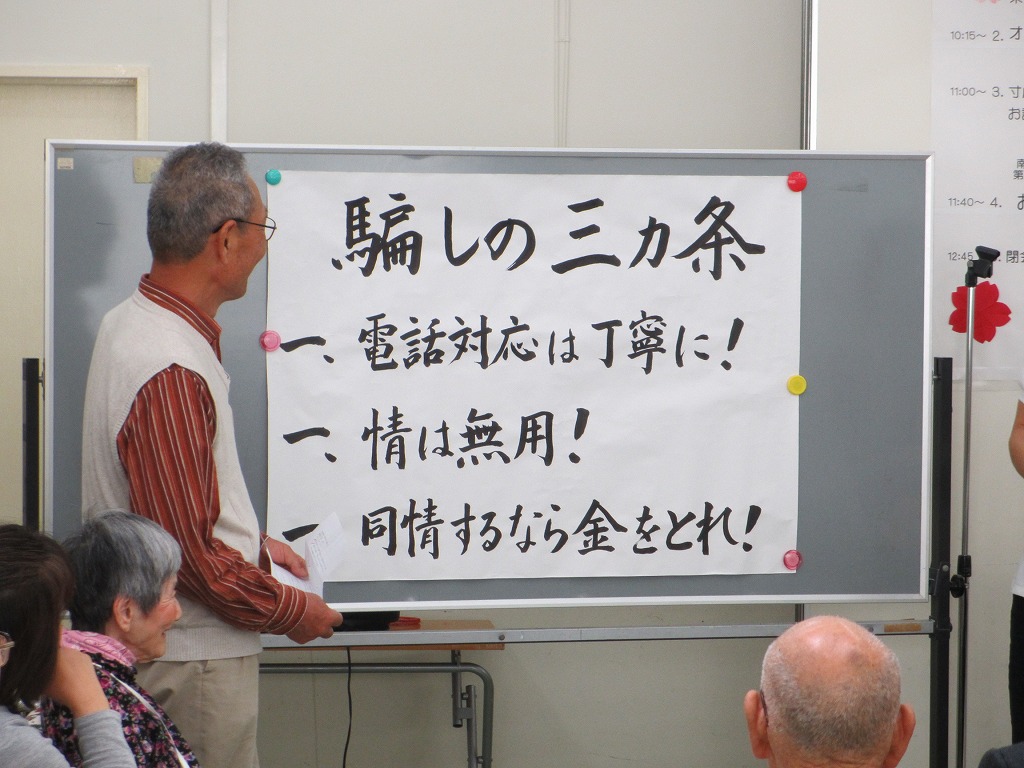 騙しの三カ条
一、電話対応は丁寧に!
一、情は無用!
一、同情するなら金をとれ!
10:15～ 2. オ
11:00～ 3. 寸
お
南
第
11:40～ 4. お
12:45
閉会